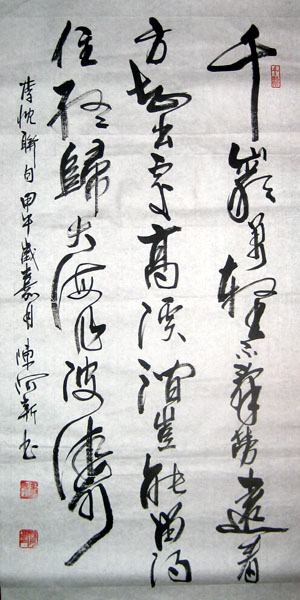 千巖萬壑不辞勞遠看
方知出處高溪澗豈能留得
住終歸大海作波濤
李忱聯句甲午歲嘉月陳河新书